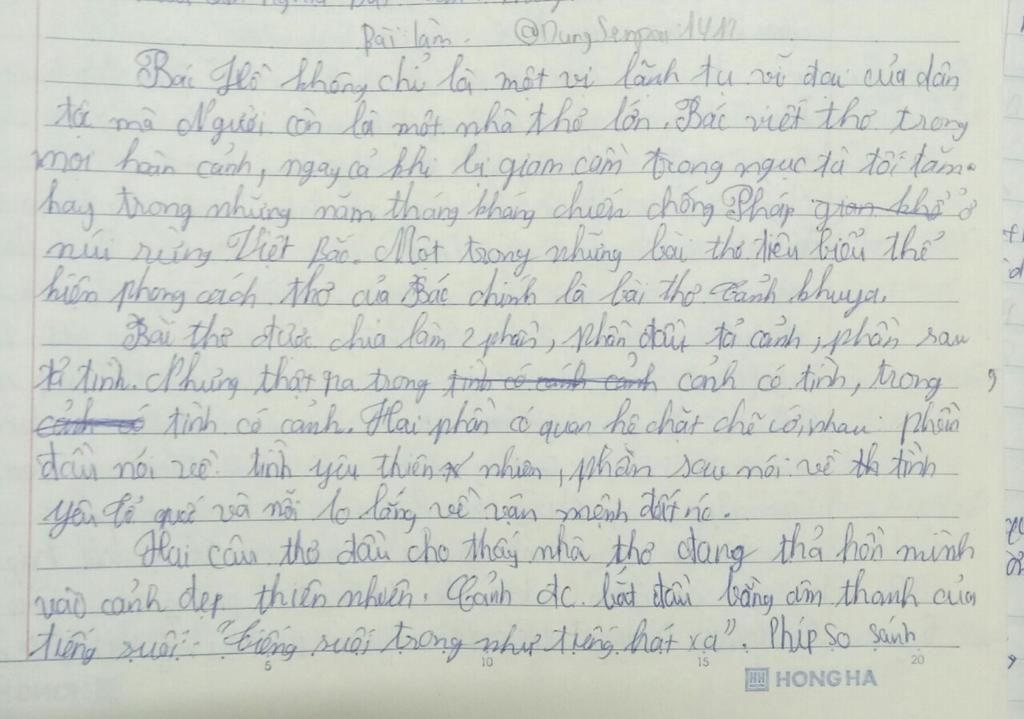 Bài làm. @DungSenpai1412
Bác Hồ không chỉ là một vị lãnh tụ vĩ đại của dân
tộc mà Người còn là một nhà thơ lớn. Bác viết thơ trong
mọi hoàn cảnh, ngay cả khi bị giam cầm trong ngục tù tối tăm
hay trong những năm tháng kháng chiến chống Pháp gian khổ ở
núi rừng Việt Bắc. Một trong những bài thơ tiêu biểu thể
hiện phong cách thơ của Bác chính là bài thơ Cảnh khuya.
Bài thơ được chia làm 2 phần, phần đầu tả cảnh, phần sau
tả tình. Nhưng thật ra trong cảnh có tình, trong
tình có cảnh. Hai phần có quan hệ chặt chẽ với nhau phần
đầu nói về tình yêu thiên nhiên, phần sau nói về tình
yêu tổ quố và nỗi lo lắng về vận mệnh đất nc.
Hai câu thơ đầu cho thấy nhà thơ đang thả hồn mình
vào cảnh đẹp thiên nhiên. Cảnh đc bắt đầu bằng âm thanh của
tiếng suối: "Tiếng suối trong như tiếng hát xa". Phép so sánh
5 10 15 20
HONG HA